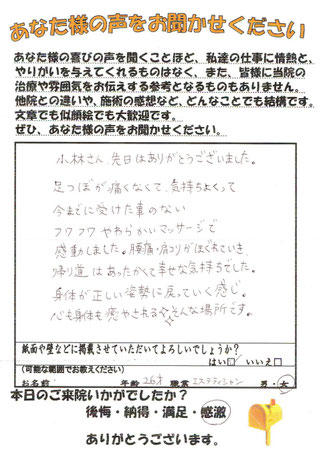 あなた様の声をお聞かせください
あなた様の喜びの声を聞くことほど、私達の仕事に情熱と、
やりがいを与えてくれるものはなく、また、皆様に当院の
治療や雰囲気をお伝えする参考となるものもありません。
他院との違いや、施術の感想など、どんなことでも結構です。
文章でも似顔絵でも大歓迎です。
ぜひ、あなた様の声をお聞かせください。
小林さん、先日はありがとうございました。
足つぼが痛くなくて、気持ちよくって
今までに受けた事のない
フワフワやわらかいマッサージで
感動しました。腰痛・肩コリがほぐれていき
帰り道はあったかくて幸せな気持ちでした。
身体が正しい姿勢に戻っていく感じ。
心も身体も癒やされる☆そんな場所です。
紙面や壁などに掲載させていただいてよろしいでしょうか?
はい□/いいえ□
(可能な範囲でお教えください)
お名前 年齢 26才 職業 エステティシャン 男・女
本日のご来院いかがでしたか?
後悔・納得・満足・感激
ありがとうございます。